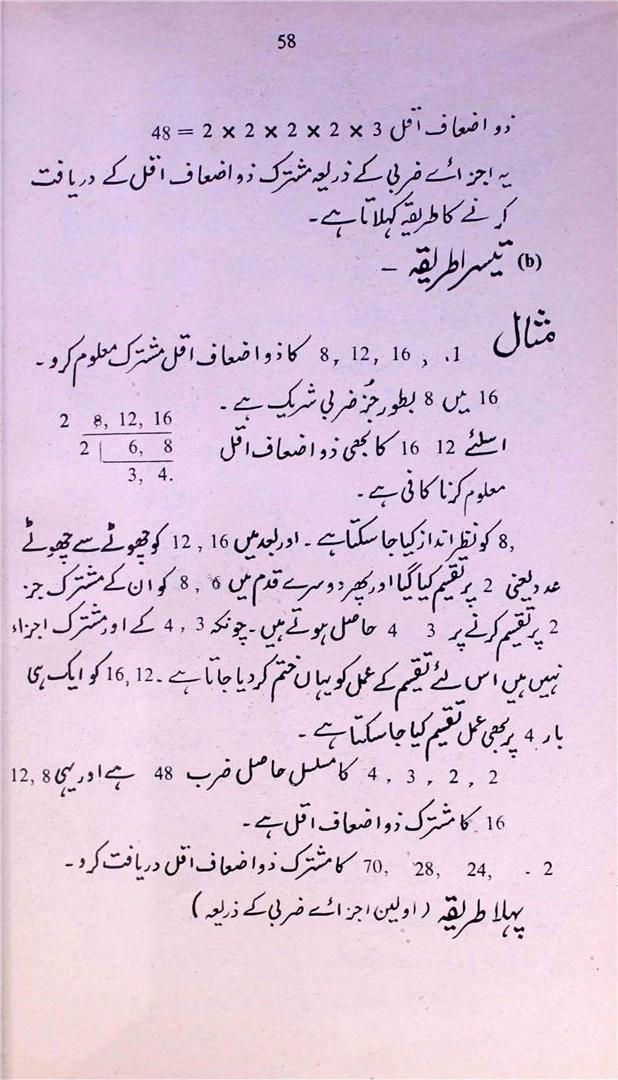 58
ذو اضعاف اقل 48 = 2 × 2 × 2 × 2 × 3
یہ اجزائے ضربی کے ذریعہ مشترک ذو اضعاف اقل کے دریافت
کرنے کا طریقہ کہلاتا ہے۔
(b) تیسرا طریقہ –
مثال
1. , 8, 12, 16 کا ذو اضعاف اقل مشترک معلوم کرو۔
16 میں 8 بطور جُز ضربی شریک ہے۔
2 8, 12, 16
اسلئے 12 16 کا بھی ذو اضعاف اقل
2 | 6, 8
3, 4.
معلوم کرنا کافی ہے۔
8, کو نظر انداز کیا جا سکتا ہے۔ اور بعد میں 12 , 16 کو چھوٹے سے چھوٹے
عدد یعنی 2 پر تقسیم کیا گیا اور پھر دوسرے قدم میں 6 , 8 کو ان کے مشترک جز
2 پر تقسیم کرنے پر 3 4 حاصل ہوتے ہیں۔ چونکہ 3 , 4 کے اور مشترک اجزاء
نہیں ہیں اس لئے تقسیم کے عمل کو یہاں ختم کر دیا جاتا ہے۔ 12, 16 کو ایک ہی
بار 4 پر بھی عمل تقسیم کیا جا سکتا ہے۔
2 , 2 , 3 , 4 کا مسلسل حاصل ضرب 48 ہے اور یہی 8, 12
16 کا مشترک ذو اضعاف اقل ہے۔
2 - 24, 28, 70, کا مشترک ذو اضعاف اقل دریافت کرو۔
پہلا طریقہ (اولین اجزائے ضربی کے ذریعہ)